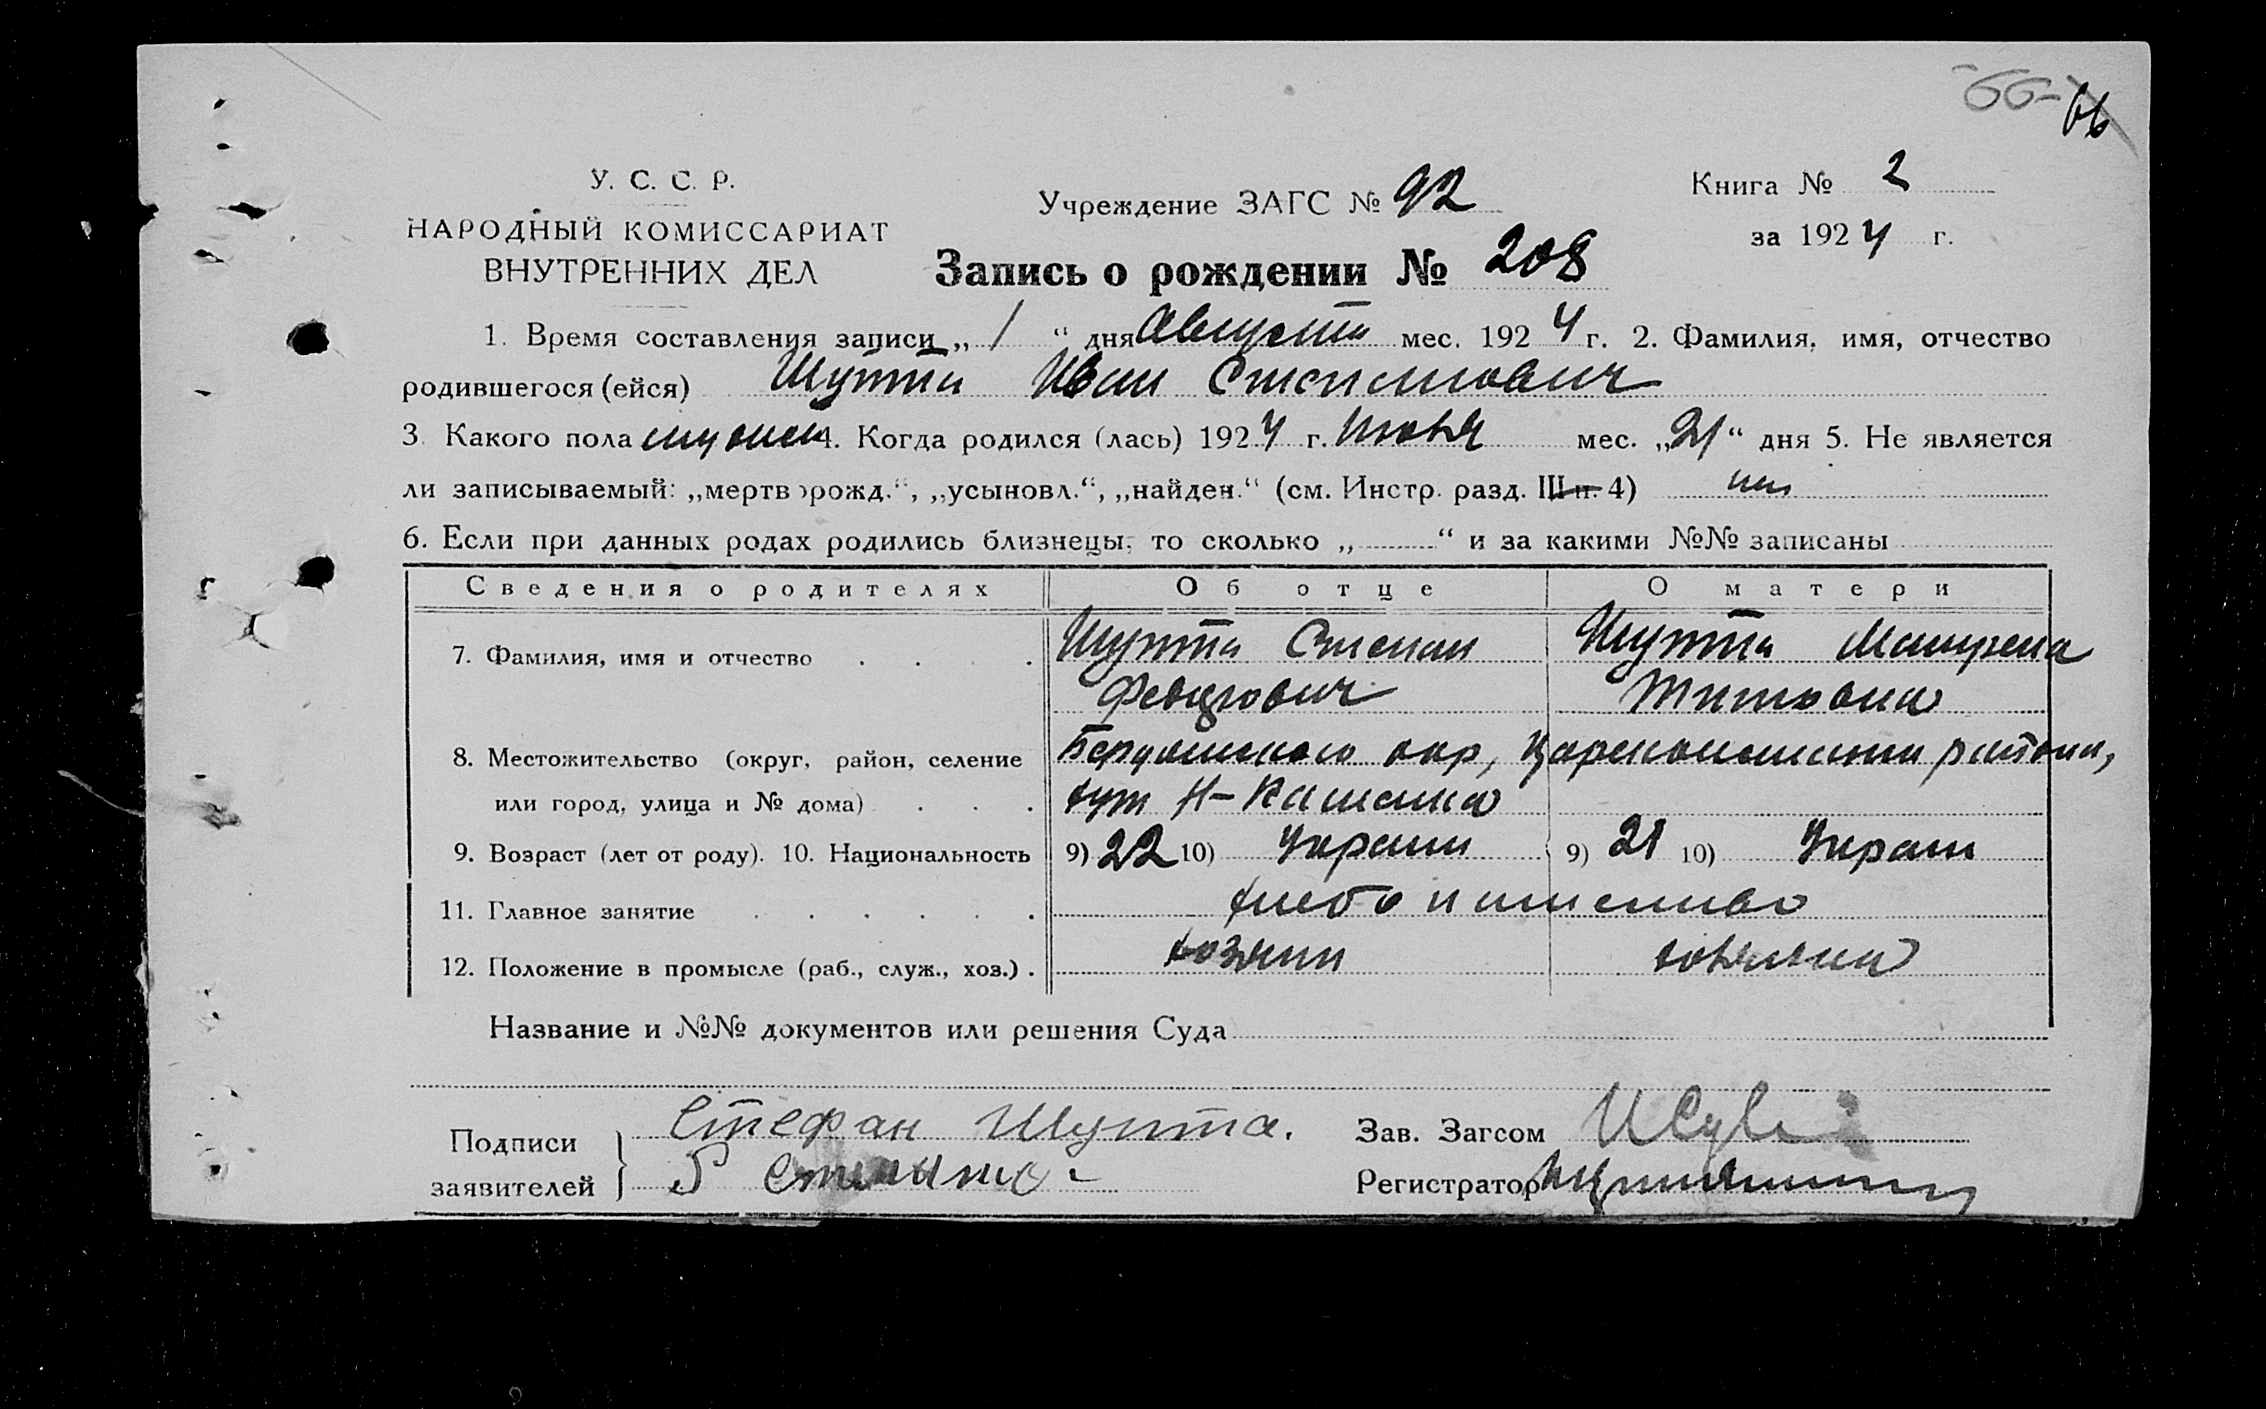 -66-
66
У. С. С. Р.
НАРОДНЫЙ КОМИССАРИАТ
ВНУТРЕННИХ ДЕЛ
Учреждение ЗАГС № 92
Книга № 2
за 1924 г.
Запись о рождении № 208
1. Время составления записи „1“ дня Августа мес. 1924 г. 2. Фамилия, имя, отчество
родившегося (ейся) Шупта Иван Степанович
3. Какого пола мужск 4. Когда родился (лась) 1924 г. Июля мес. „21“ дня 5. Не является
ли записываемый: „мертворожд.“, „усыновл.“, „найден.“ (см. Инстр. разд. III п. 4) нет
6. Если при данных родах родились близнецы, то сколько „ “ и за какими №№ записаны
Сведения о родителях Об отце О матери
7. Фамилия, имя и отчество Шупта Степан Шупта Мотрена
Федорович Титовна
8. Местожительство (округ, район, селение Бердянского окр, Цареконстант района,
или город, улица и № дома) хут Н-Каменка
9. Возраст (лет от роду). 10. Национальность 9) 22 10) Украин 9) 21 10) Украин
11. Главное занятие хлебопашество
12. Положение в промысле (раб., служ., хоз.) хозяин хозяйка
Название и №№ документов или решения Суда
Подписи
заявителей
Стефан Шупта.
Зав. Загсом
Регистратор